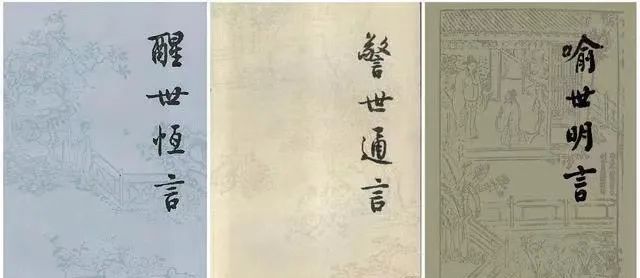 醒世恆言
警世通言
喻世明言